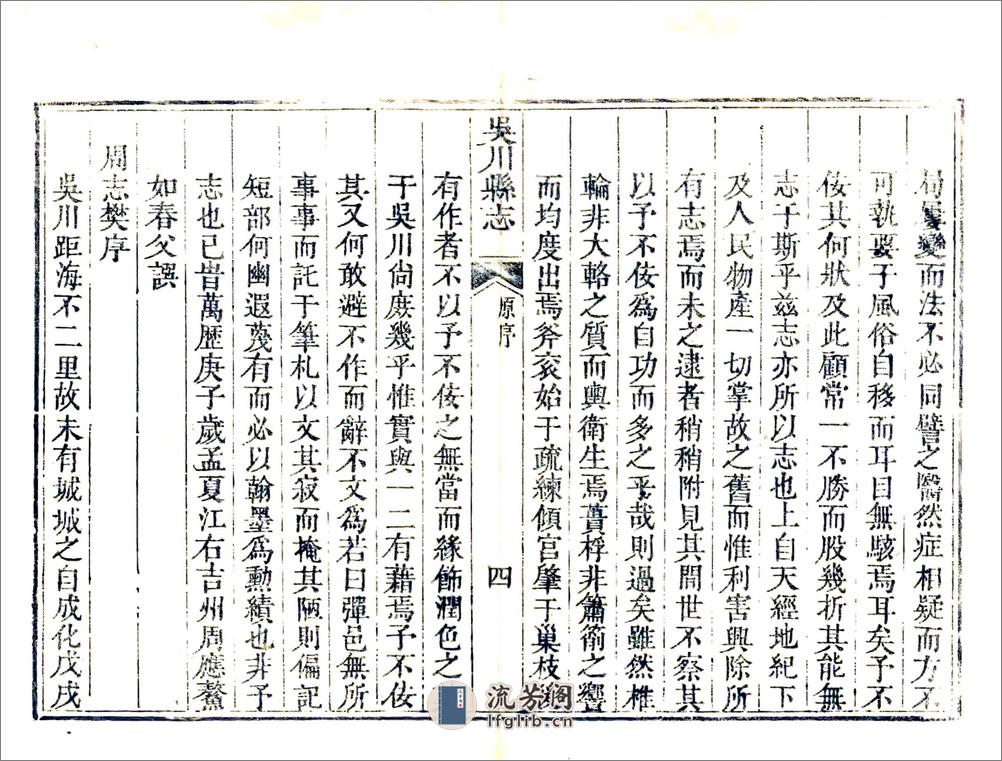 局屢變而法不必同譬之醫然症相疑而方不
可執要于風俗自移而耳目無駭焉耳矣予不
佞其何狀及此顧常一不勝而股幾折其能無
志于斯乎茲志亦所以志也上自天經地紀下
及人民物產一切掌故之舊而惟利害興除所
有志焉而未之逮者稍稍附見其間世不察其
以予不佞爲自功而多之乎哉則過矣雖然椎
輪非大輅之質而輿衛生焉蕢桴非簫箾之響
而均度出焉斧衮始于疏練傾宮肇于巢枝
吳川縣志
原序
四
有作者不以予不佞之無當而緣飾潤色之
于吳川尙庶幾乎惟實與一二有藉焉予不佞
其又何敢避不作而辭不文爲若曰彈邑無所
事事而託于筆札以文其寂而掩其陋則偏記
短部何幽遐蔑有而必以翰墨爲勳績也非予
志也已旹萬歷庚子歲孟夏江右吉州周應鰲
如春父譔
周志樊序
吳川距海不二里故未有城城之自成化戊戌
流芳閣
lfglib.cn